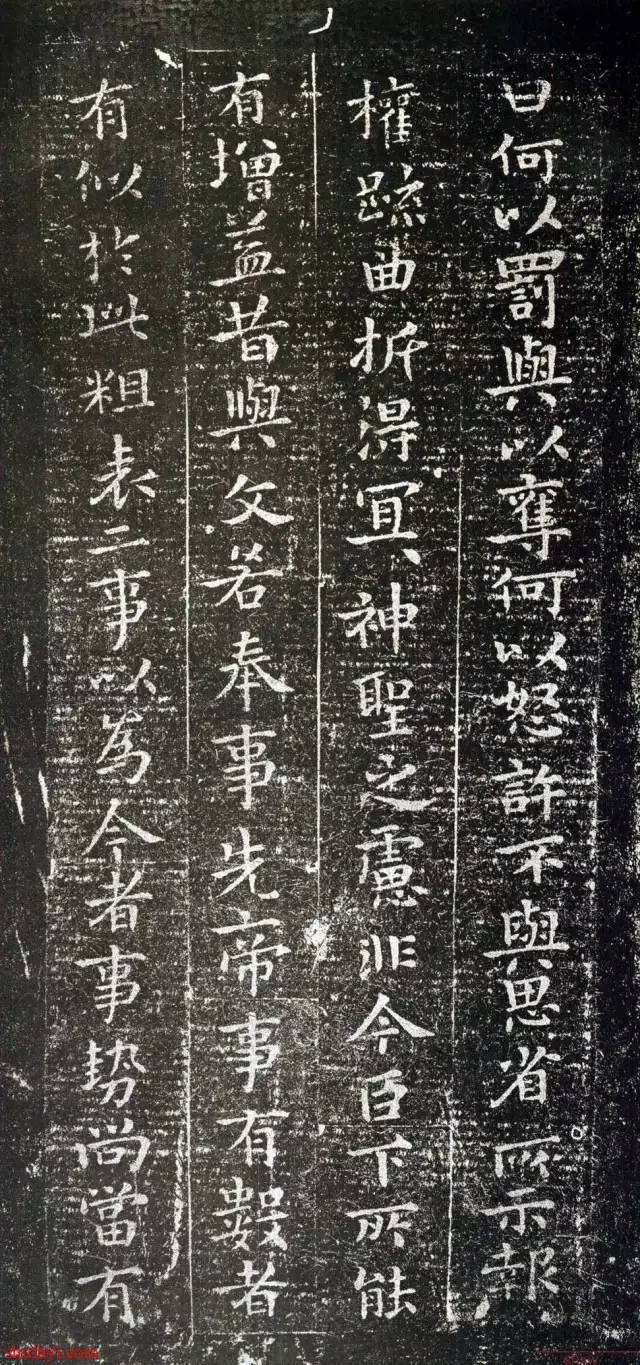 曰何以罰與以奪何以怒許不與思省所示報
權疏曲折得冝神聖之慮非今臣下所能
有增益昔與文若奉事先帝事有數者
有似於此粗表二事以為今者事勢尚當有
shufayr.com